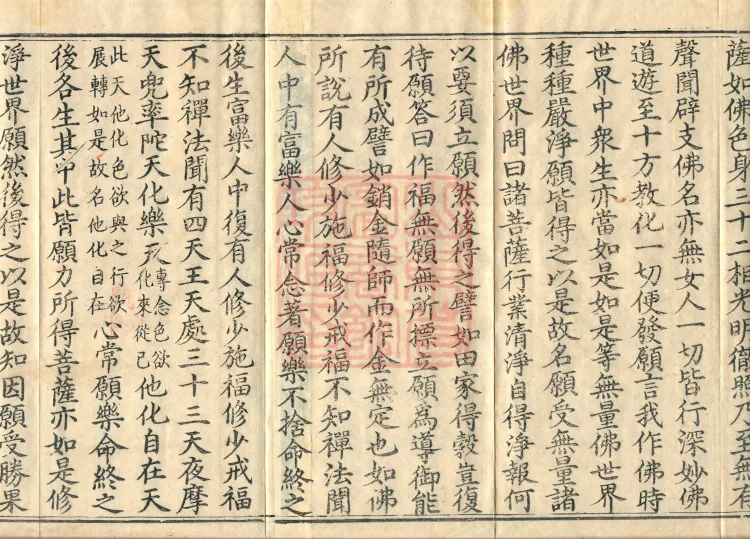 薩如佛色身三十二相光明徹照乃至無有
聲聞辟支佛名亦無女人一切皆行深妙佛
道遊至十方教化一切便發願言我作佛時
世界中衆生亦當如是如是等無量佛世界
種種嚴淨願皆得之以是故名願受無量諸
佛世界問曰諸菩薩行業清淨自得淨報何
以要須立願然後得之譬如田家得穀豈復
待願答曰作福無願無所摽立願為導御能
有所成譬如銷金隨師而作金無定也如佛
所說有人修少施福修少戒福不知禪法聞
人中有富樂人心常念著願樂不捨命終之
後生富樂人中復有人修少施福修少戒福
不知禪法聞有四天王天處三十三天夜摩
天兜率陀天化樂天專念色欲化來從己他化自在天
此天他化色欲與之行欲展轉如是故名他化自在心常願樂命終之
後各生其中此皆願力所得菩薩亦如是修
淨世界願然後得之以是故知因願受勝果